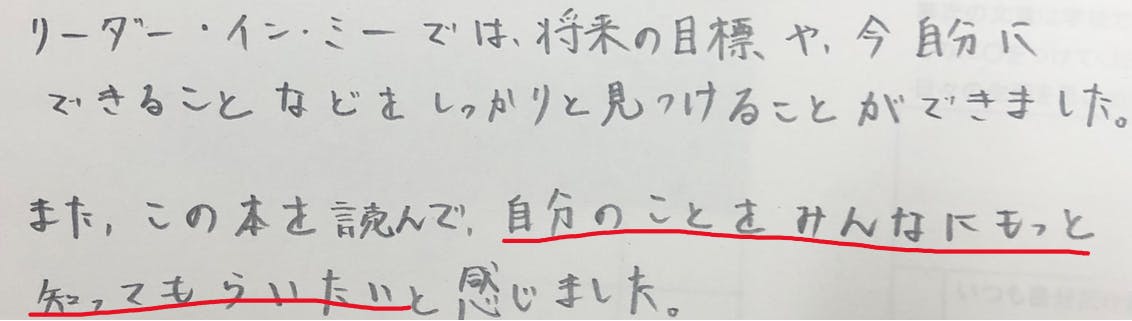 リーダー・イン・ミーでは、将来の目標や、今自分に
できることなどをしっかりと見つけることができました。
また、この本を読んで、自分のことをみんなにもっと
知ってもらいたいと感じました。